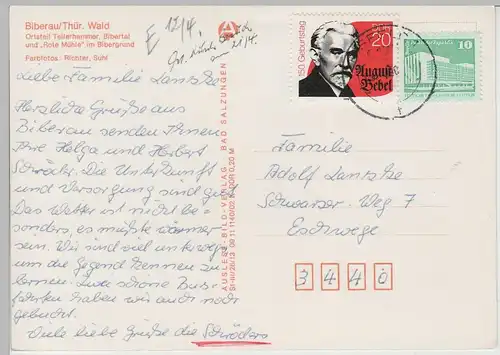 Biberau/Thür. Wald
Ortsteil Tellerhammer, Bibertal
und „Rote Mühle“ im Bibergrund
Farbfotos: Richter, Suhl
E 12/4
21/4.
Liebe Familie Lantzke
Herzliche Grüße aus
Biberau senden Ihnen
Ihre Helga und Herbert
Schröder. Die Unterkunft
und Versorgung sind gut.
Das Wetter ist nicht be-
sonders, es müßte wärmer
sein. Wir sind viel unterwegs
um die Gegend kennen zu
lernen. Zwei schöne Bus-
fahrten haben wir auch noch
gebucht.
Viele liebe Grüße die Schröders
AUSLESE-BILD-VERLAG BAD SALZUNGEN
150. Geburtstag
DDR
20
August
Bebel
DDR
10
Familie
Adolf Lantzke
Schwarzer-Weg 7
Eschwege
3 4 4 0